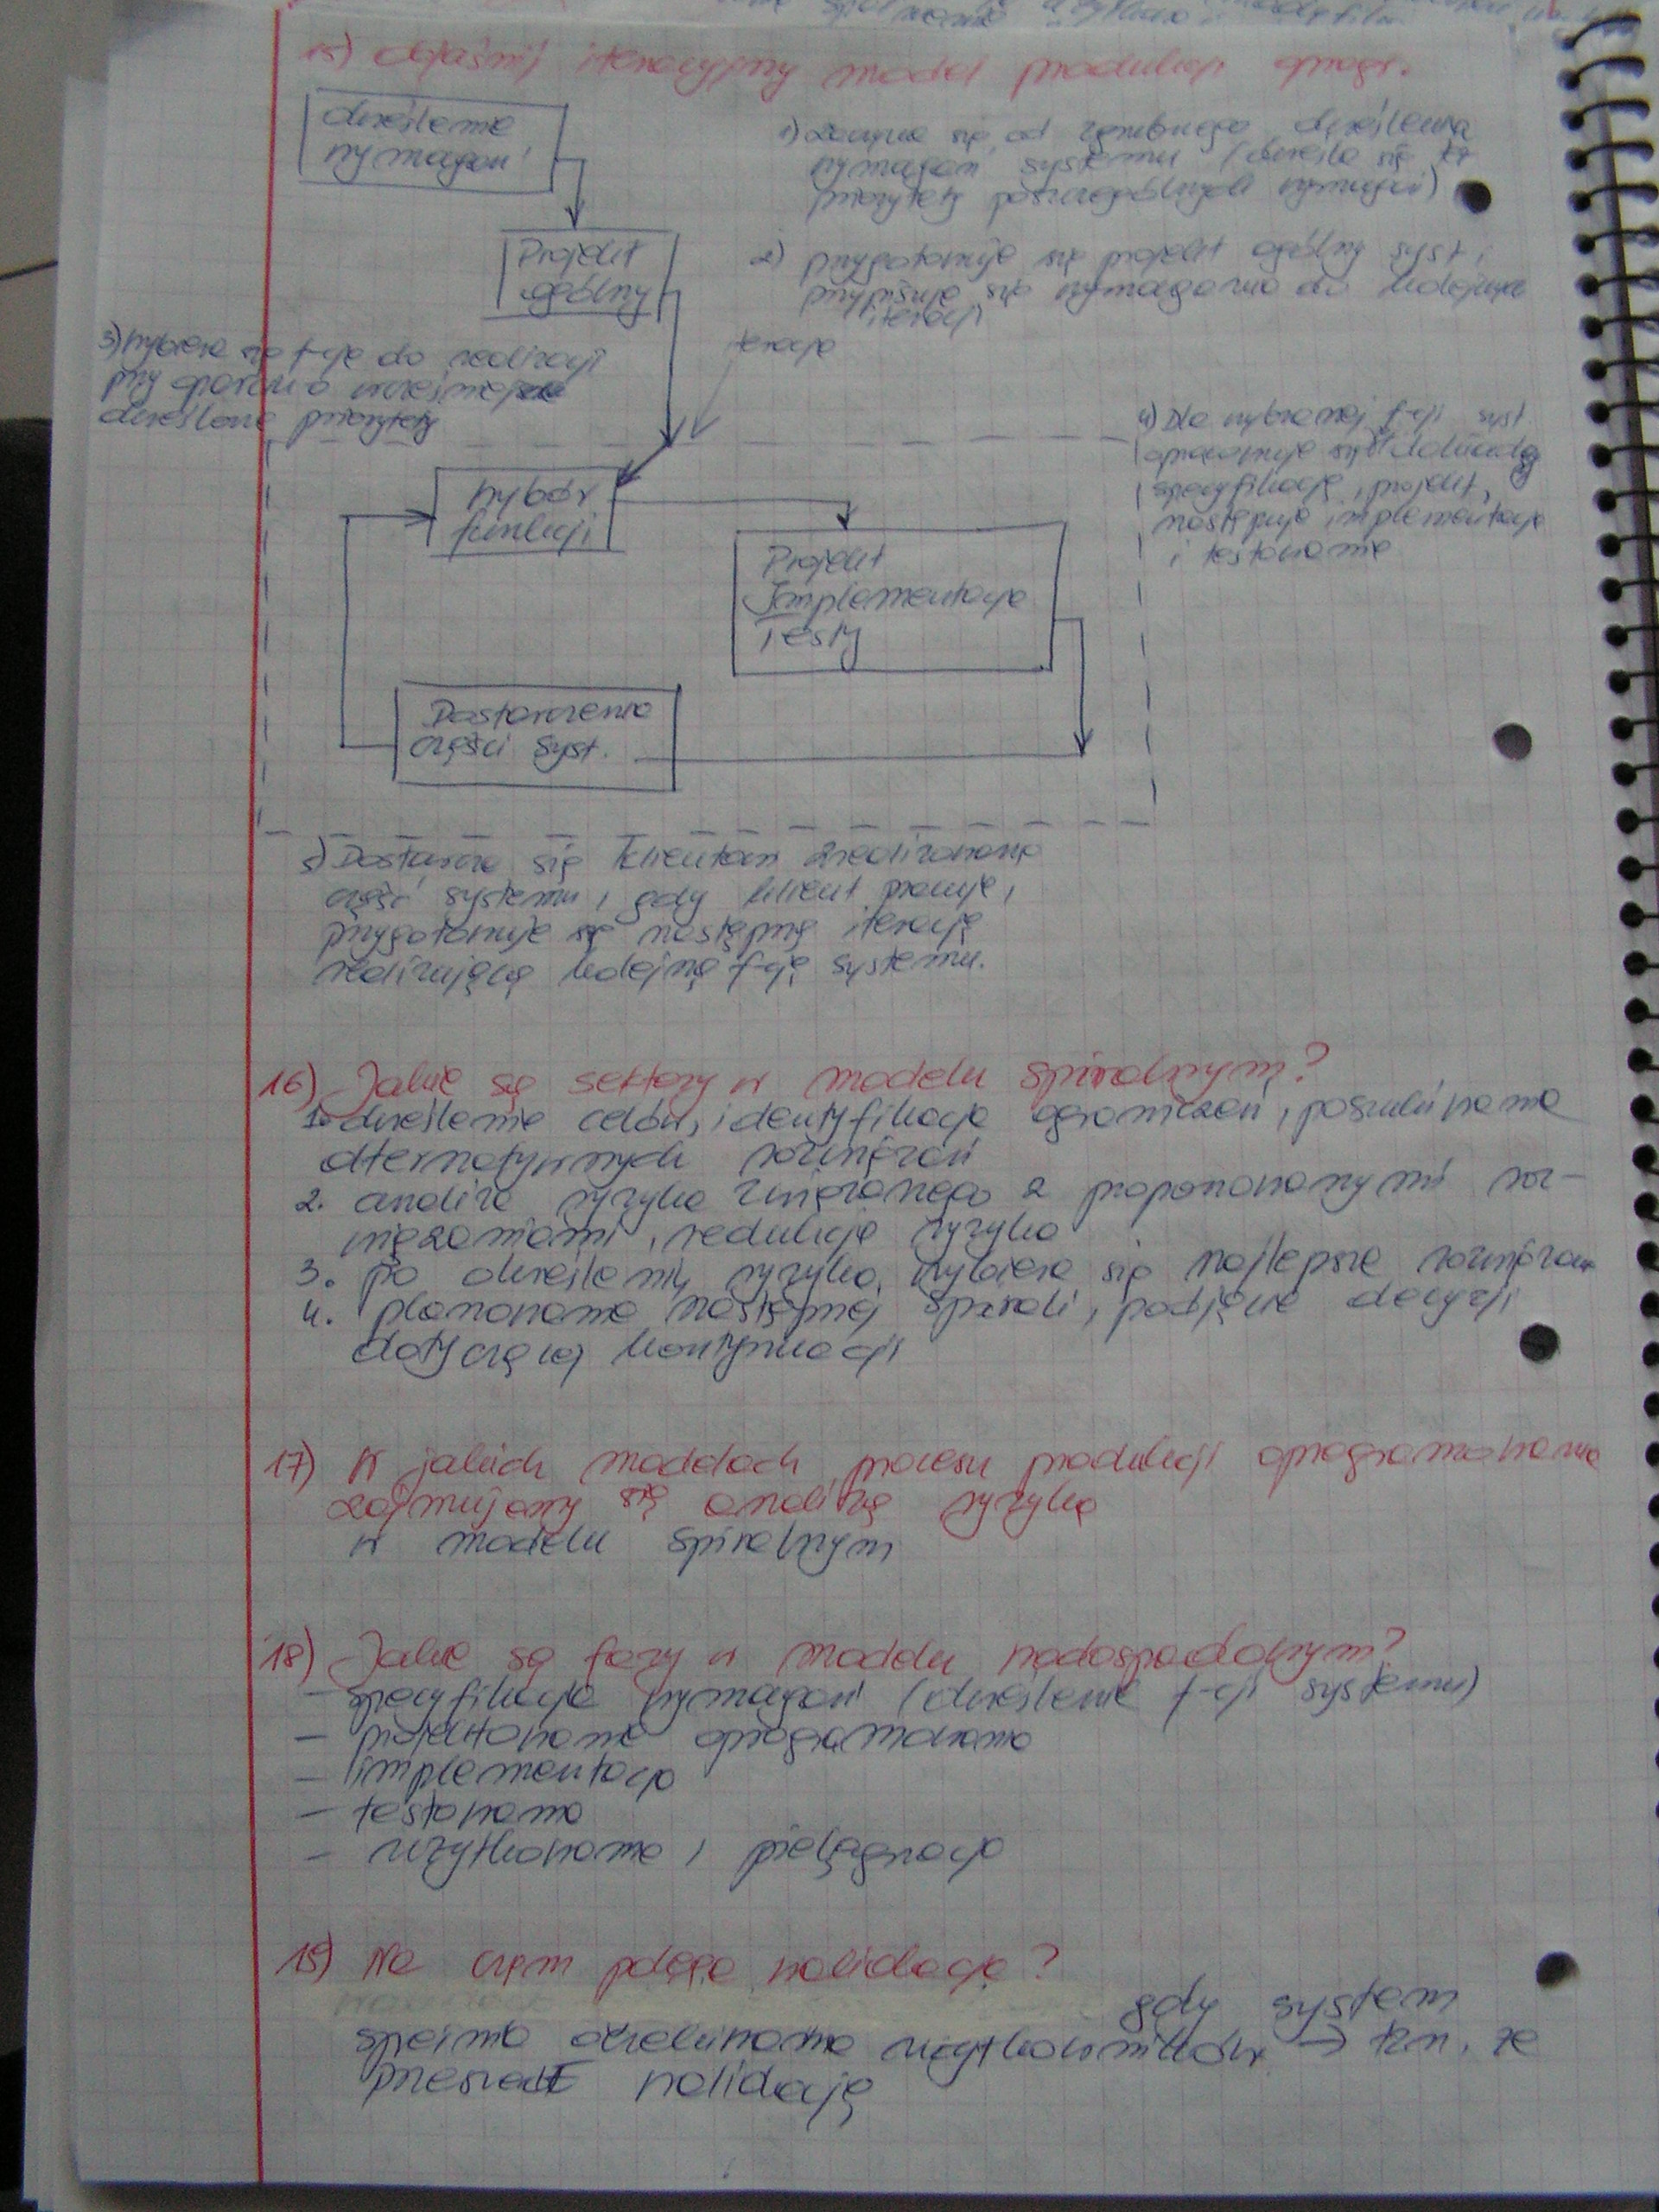 15) objaśnij iteracyjny model produkcji oprogr.
określenie
wymagań
1) zaczyna się od zgrubnego określenia
wymagań systemu (określa się też
priorytety poszczególnych wymagań)
Projekt
ogólny
2) przygotowuje się projekt ogólny syst i
przypisuje się wymagania do kolejnych
iteracji
iteracja
3) wybiera się f-cje do realizacji
przy oparciu o wcześniej
określone priorytety
4) Dla wybranej f-cji syst.
opracowuje się dokładną
specyfikację, projekt,
następuje implementacja
i testowanie
wybór
funkcji
Projekt
Implementacja
Testy
Dostarczenie
części syst.
5) Dostarcza się klientom zrealizowaną
część systemu, gdy klient pracuje,
przygotowuje się następną iterację
realizującą kolejną f-cję systemu.
16) Jakie są sektory w modelu spiralnym?
1. określenie celów, identyfikacja ograniczeń, poszukiwanie
alternatywnych rozwiązań
2. analiza ryzyka związanego z proponowanymi roz-
wiązaniami, redukcja ryzyka
3. po określeniu ryzyka, wybiera się najlepsze rozwiązanie
4. planowanie następnej spirali, podjęcie decyzji
dotyczącej kontynuacji
17) W jakich modelach procesu produkcji oprogramowania
zajmujemy się analizą ryzyka
w modelu spiralnym
18) Jakie są fazy w modelu kaskadowym?
- specyfikacja wymagań (określenie f-cji systemu)
- projektowanie oprogramowania
- implementacja
- testowanie
- użytkowanie i pielęgnacja
19) Na czym polega walidacja?
gdy system
spełnia oczekiwania użytkowników → tzn. że
przeszedł walidację